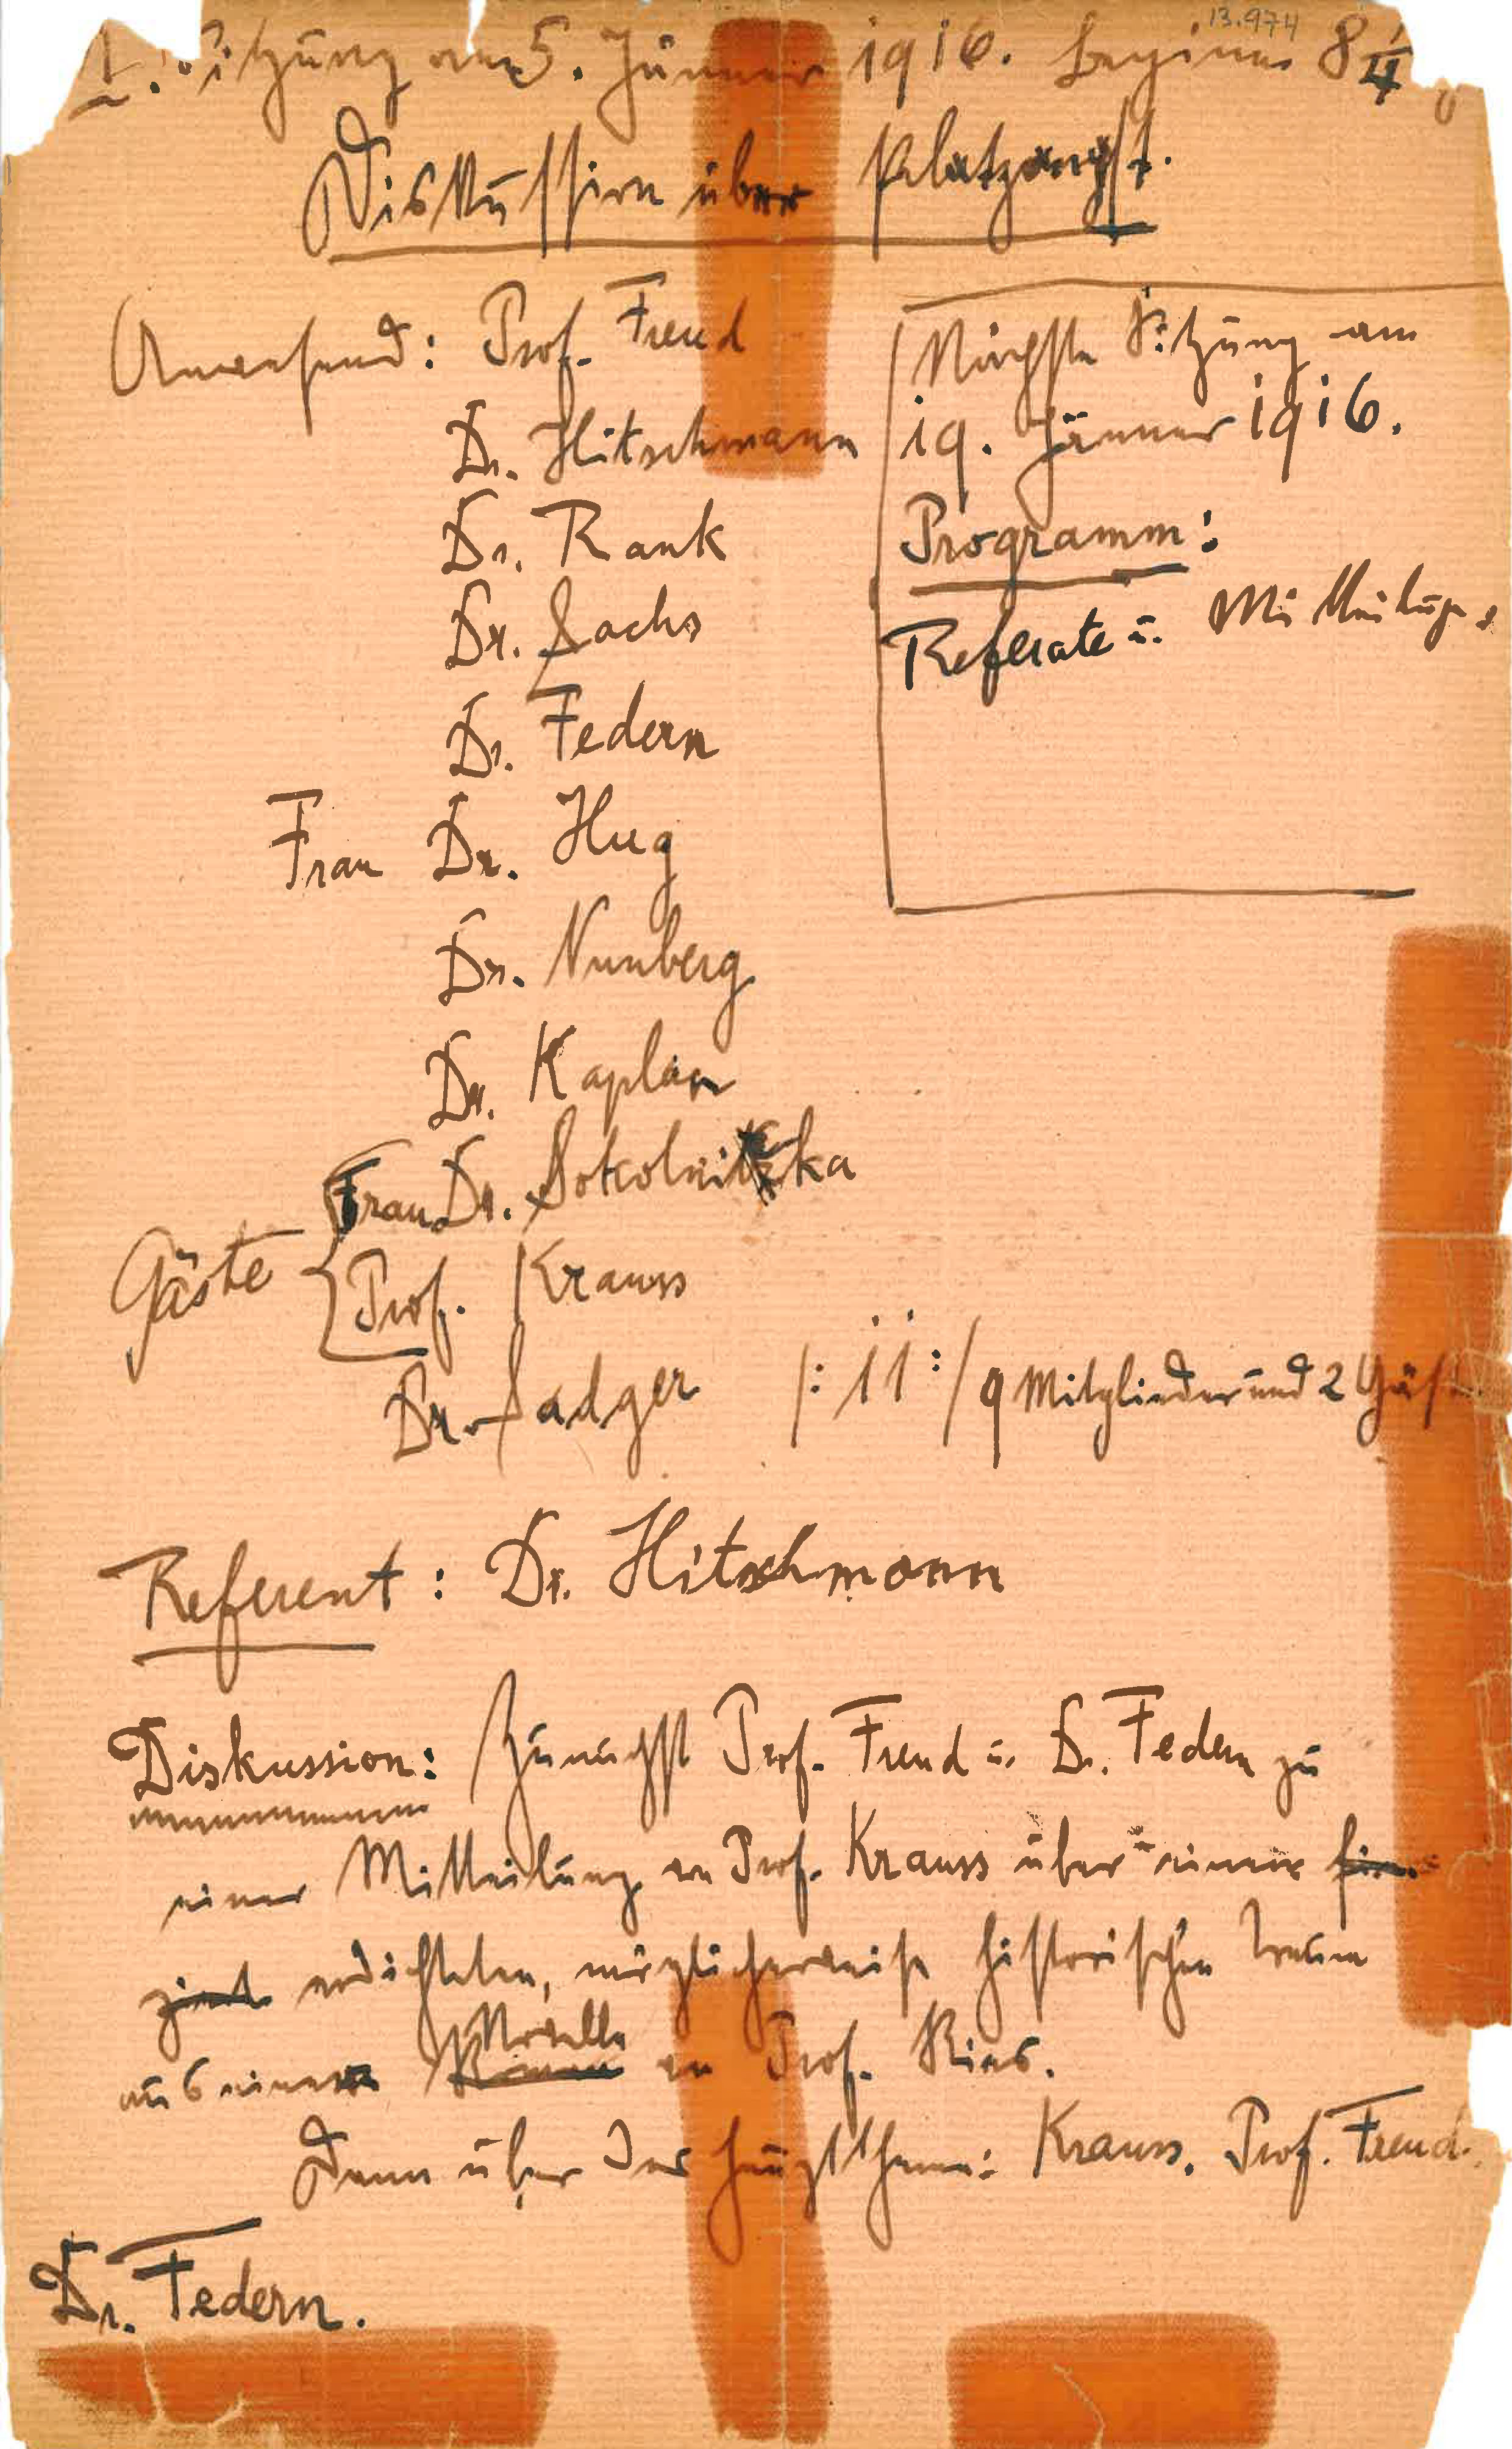 13.974
1. Sitzung am 5. Jänner 1916. Beginn 8 1/4
Diskussion über Platzangst.
Anwesend: Prof. Freud
Dr. Hitschmann
Dr. Rank
Dr. Sachs
Dr. Federn
Frau Dr. Hug
Dr. Nunberg
Dr. Kaplan
Frau Dr. Sokolnitzka
Gäste { Prof. Krauss
Dr. Sadger /: 11 :/ 9 Mitglieder und 2 Gäste
Nächste Sitzung am
19. Jänner 1916.
Programm:
Referate u. Mitteilungen
Referent: Dr. Hitschmann
Diskussion: Zunächst Prof. Freud u. Dr. Federn zu
einer Mitteilung von Prof. Krauss über einen
erdichteten, möglicherweise historischen Traum
aus einer Novelle von Prof.
Dann über das Hauptthema: Krauss. Prof. Freud.
Dr. Federn.